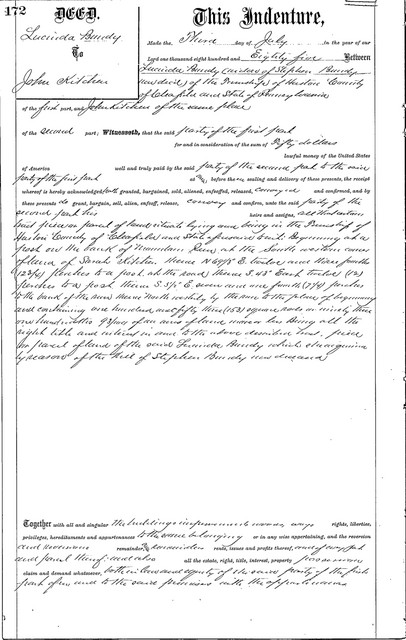 172
DEED.
Lucinda Bundy
To
John Kitchen
This Indenture,
Made the Third day of July in the year of our
Lord one thousand eight hundred and Eighty five Between
Lucinda Bundy widow of Stephen Bundy
now dec'd of the Township of Huston County
of Clearfield and State of Pennsylvania
of the first part, and John Kitchen of the same place
of the second part; Witnesseth, that the said party of the first part
for and in consideration of the sum of Fifty dollars
lawful money of the United States
of America well and truly paid by the said party of the second part to the said
party of the first part at and before the sealing and delivery of these presents, the receipt
whereof is hereby acknowledged, hath granted, bargained, sold, aliened, enfeoffed, released, conveyed and confirmed, and by
these presents do grant, bargain, sell, alien, enfeoff, release, convey and confirm, unto the said party of the
second part his heirs and assigns, all that certain
tract piece or parcel of land situate lying and being in the Township of
Huston County of Clearfield and State aforesaid and Beginning at a
post on the bank of River at the South western corner
of land of Sarah Kitchen thence N 69 1/2 E. twelve and three fourths
(12 3/4) perches to a post at the road thence S 45° East twelve (12)
perches to a post thence S. E. seven and one fourth (7 1/4) perches
to the bank of the run thence North westerly by the run to the place of beginning
and containing one hundred and fifty three (153) square rods or ninety three
one hundredths 93/100 of an acre of land more or less Being all the
right title and interest in and to the above described tract, piece
or parcel of land of the said Lucinda Bundy which she acquired
by reason of the will of Stephen Bundy now deceased
Together with all and singular the buildings improvements woods, ways rights, liberties,
privileges, hereditaments and appurtenances to the same belonging or in any wise appertaining, and the reversion
and reversions remainder and remainders rents, issues and profits thereof, and of every part
and parcel thereof; and also all the estate, right, title, interest, property possession
claim and demand whatsoever, both in law and equity of the said party of the first
part of in and to the said premises with the appurtenances